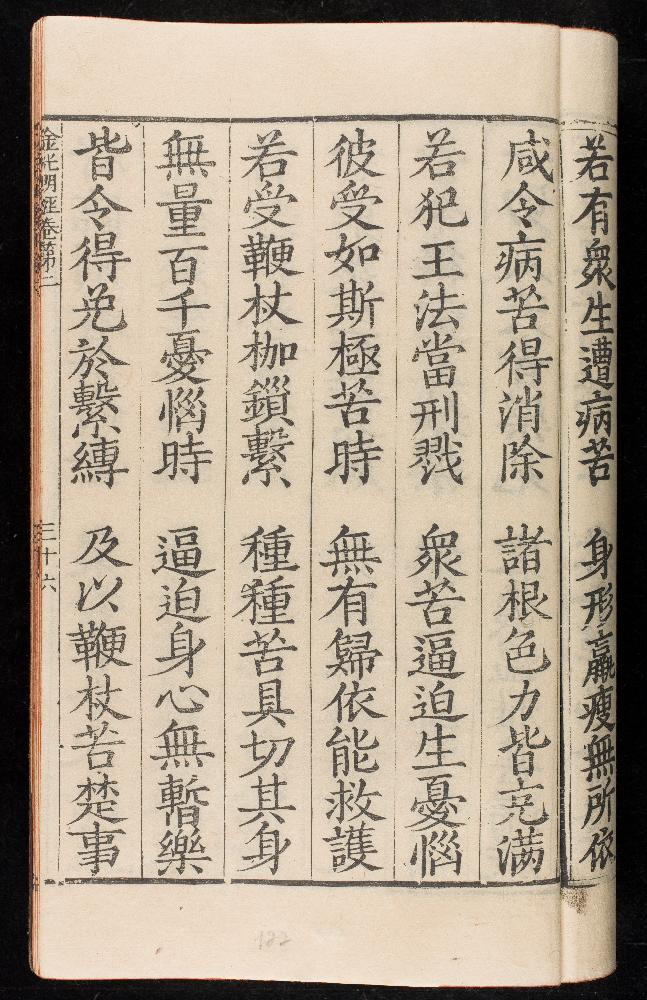 若有衆生遭病苦　身形羸瘦無所依
咸令病苦得消除　諸根色力皆充满
若犯王法當刑戮　衆苦逼迫生憂惱
彼受如斯極苦時　無有歸依能救護
若受鞭杖枷鎖繫　種種苦具切其身
無量百千憂惱時　逼迫身心無暫樂
皆令得免於繫縛　及以鞭杖苦楚事
金光明經卷第二　三十六
122